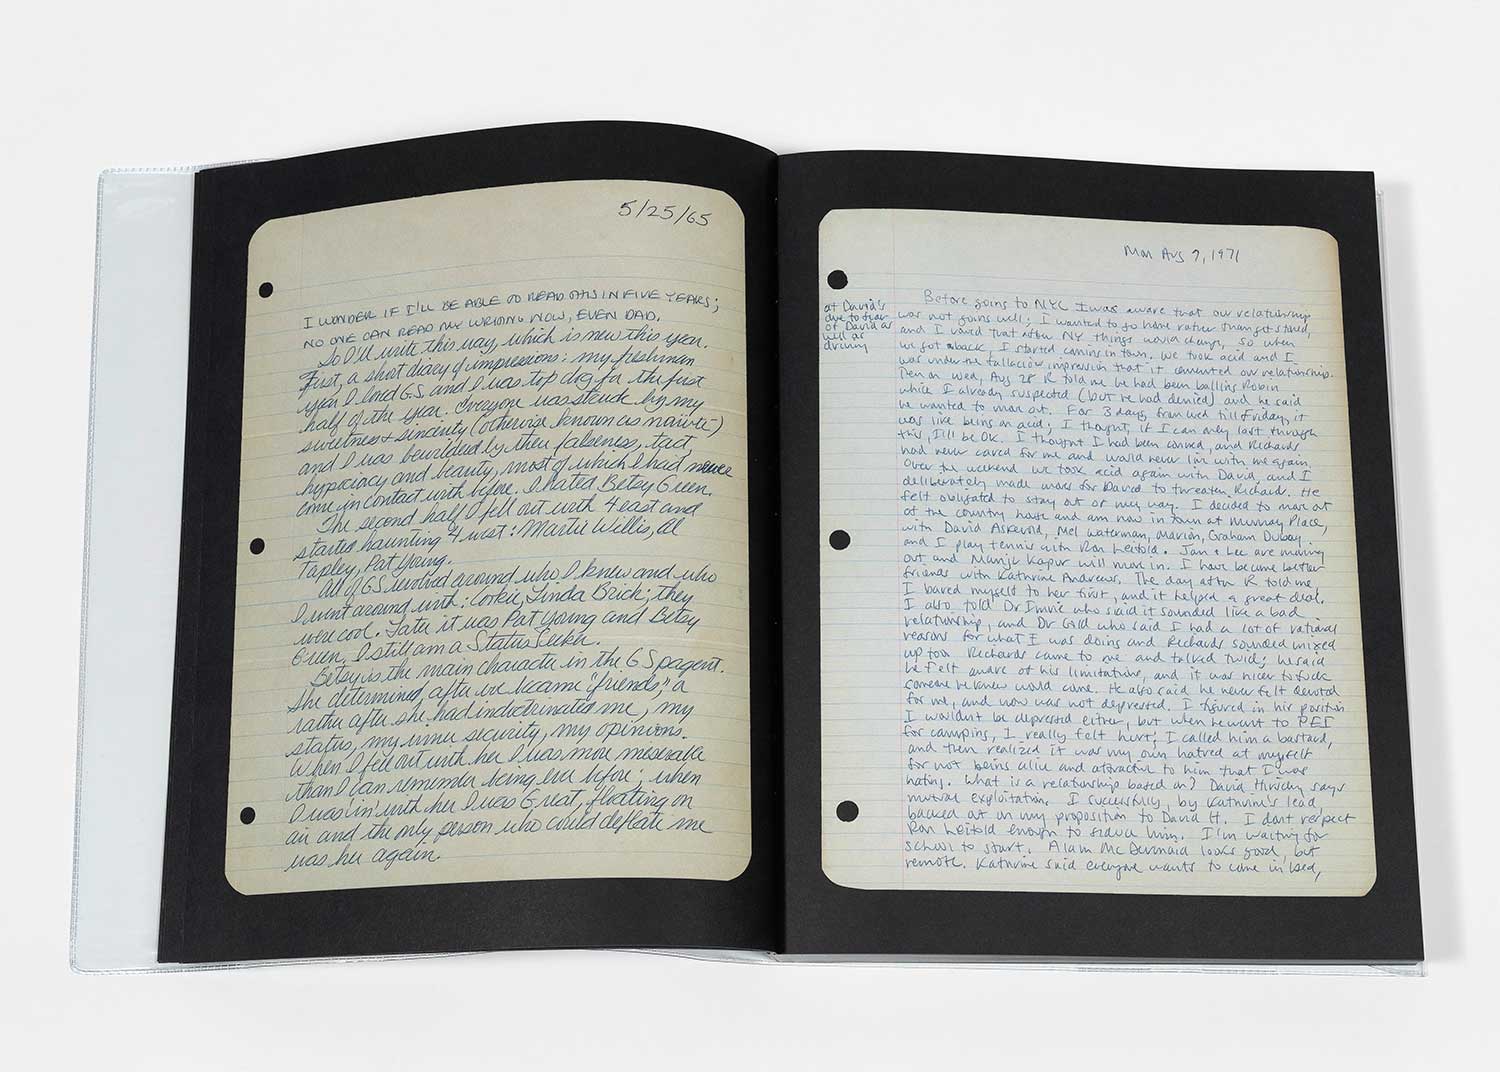 5/25/65
I WONDER IF I'LL BE ABLE TO READ THIS IN FIVE YEARS;
NO ONE CAN READ MY WRITING NOW, EVEN DAD.
So I'll write this way, which is new this year.
First, a short diary of impressions: my freshman
year I loved G.S. and I was top dog for the first
half of the year. Everyone was struck by my
sweetness & sincerity (otherwise known as naivete)
and I was bewildered by their falseness, tact,
hypocracy and beauty, most of which I had never
come in contact with before. I hated Betsy Green.
The second half I fell out with 4 east and
started haunting 4 west: Martie Willis, Al
Tapley, Pat Young.
All of GS revolved around who I knew and who
I went around with: Corkie, Linda Brick; they
were cool. Later it was Pat Young and Betsy
Green. I still am a Status Seeker.
Betsy is the main character in the GS pagent.
She determined, after we became "friends," a
rather after she had indoctrinated me, my
status, my inner security, my opinions.
When I fell out with her I was more miserable
than I can remember being ever before; when
I was 'in' with her I was Great, floating on
air and the only person who could deflate me
was her again.
Mon Aug 7, 1971
at David's
due to fear
of David as
well as
driving
Before going to NYC I was aware that our relationship
was not going well; I wanted to go home rather than get stoned,
and I vowed that after NY things would change, so when
we got back I started coming in town. We took acid and I
was under the fallacious impression that it cemented our relationship.
Then on Wed, Aug 28 R told me he had been balling Robin
while I already suspected (but he had denied) and he said
he wanted to move out. For 3 days, from Wed till Friday, it
was like being on acid. I thought, if I can only last through
this, I'll be OK. I thought I had been conned, and Richards
had never cared for me and would never live with me again.
Over the weekend we took acid again with David, and I
deliberately made moves for David to threaten Richards. He
felt obligated to stay out of my way. I decided to move out
of the country house and am now in town at Murray Place,
with David Askevold, Mel Waterman, Marion, Graham Dubay
and I play tennis with Ron Leitold. Jan + Lee are moving
out and Manju Kapur will move in. I have become better
friends with Kathrine Andrews. The day after R told me,
I bared myself to her first, and it helped a great deal.
I also told Dr Imrie who said it sounded like a bad
relationship, and Dr Gold who said I had a lot of rational
reasons for what I was doing and Richards sounded mixed
up too. Richards came to me and talked twice; he said
he felt aware of his limitation, and it was nicer to fuck
someone he knew would come. He also said he never felt devoted
for me, and now was not depressed. I figured in his position
I wouldn't be depressed either, but when he went to PEI
for camping, I really felt hurt; I called him a bastard,
and then realized it was my own hatred at myself
for not being alive and attractive to him that I was
hating. What is a relationship based on? David Hirschy says
mutual exploitation. I successfully, by Kathrine's lead,
backed out on my proposition to David H. I don't respect
Ron Leitold enough to seduce him. I'm waiting for
school to start. Alan McDermaid looks good, but
remote. Kathrine said everyone wants to come in bed,